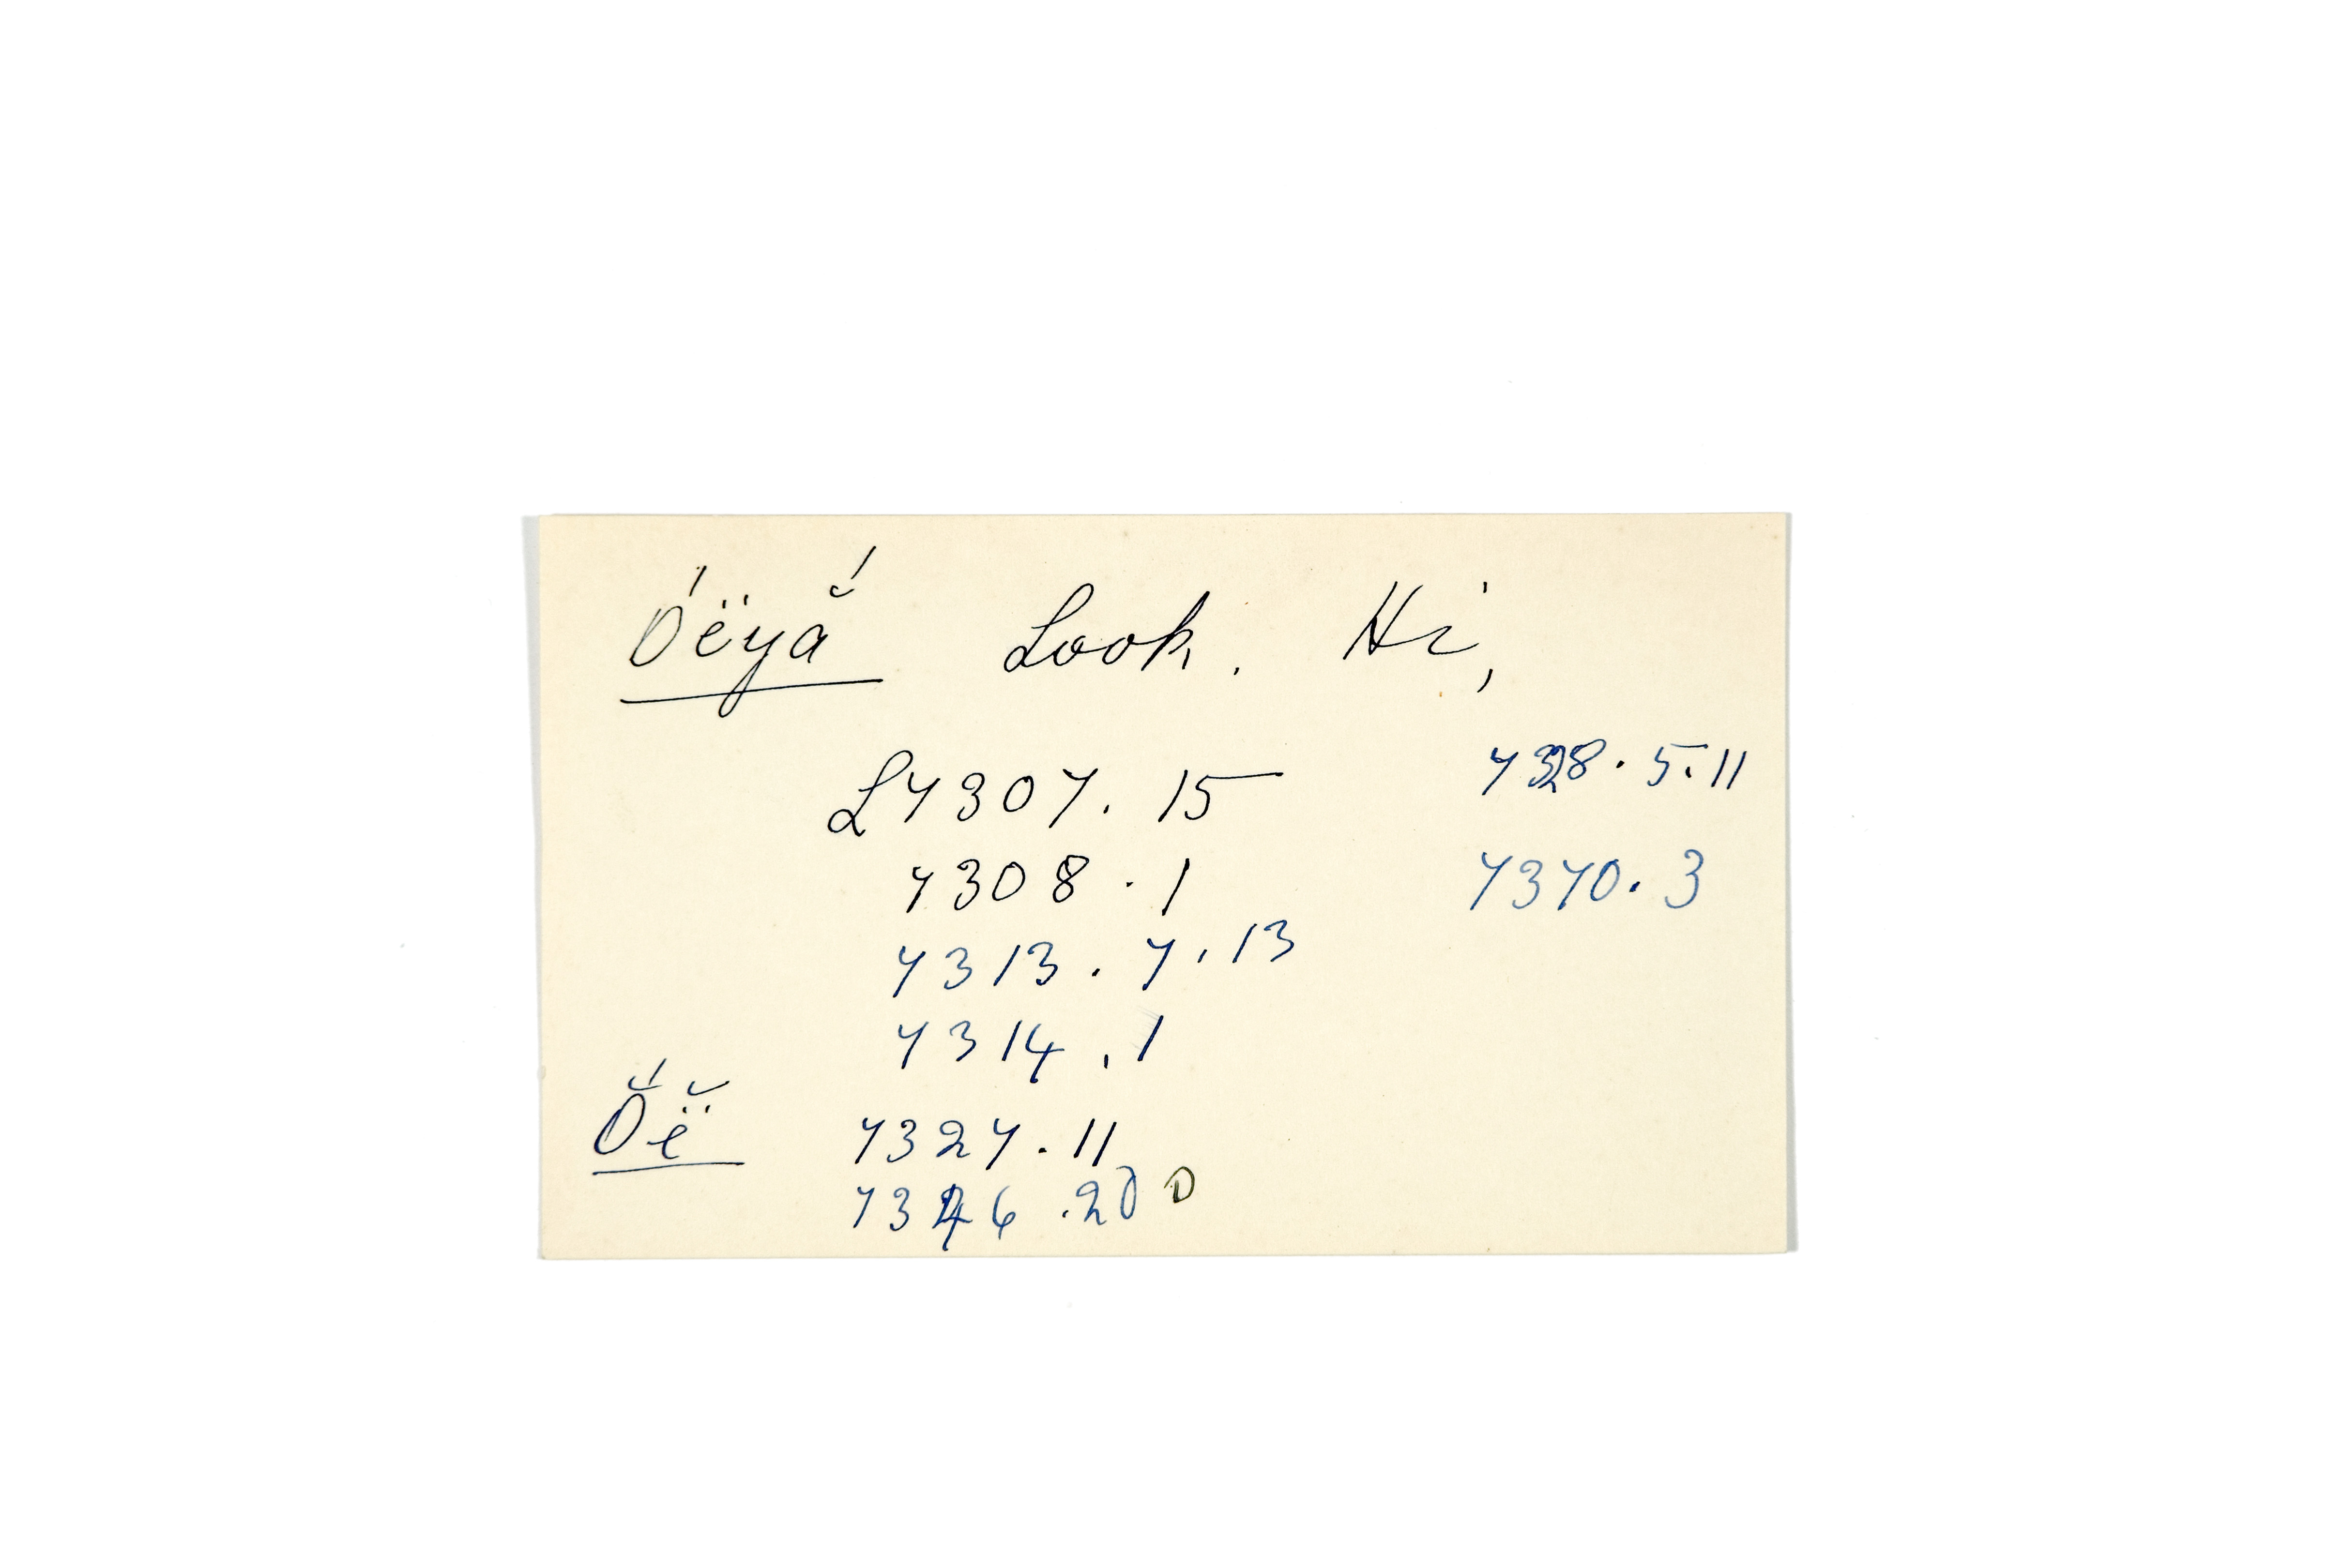 Óëyắ Look. Hi,
L7307. 15
7308 . 1
7313 . 7 . 13
7314 . 1
Ŏ́ë̆ 7327 . 11
7346 .20
7328 . 5. 11
7370. 3